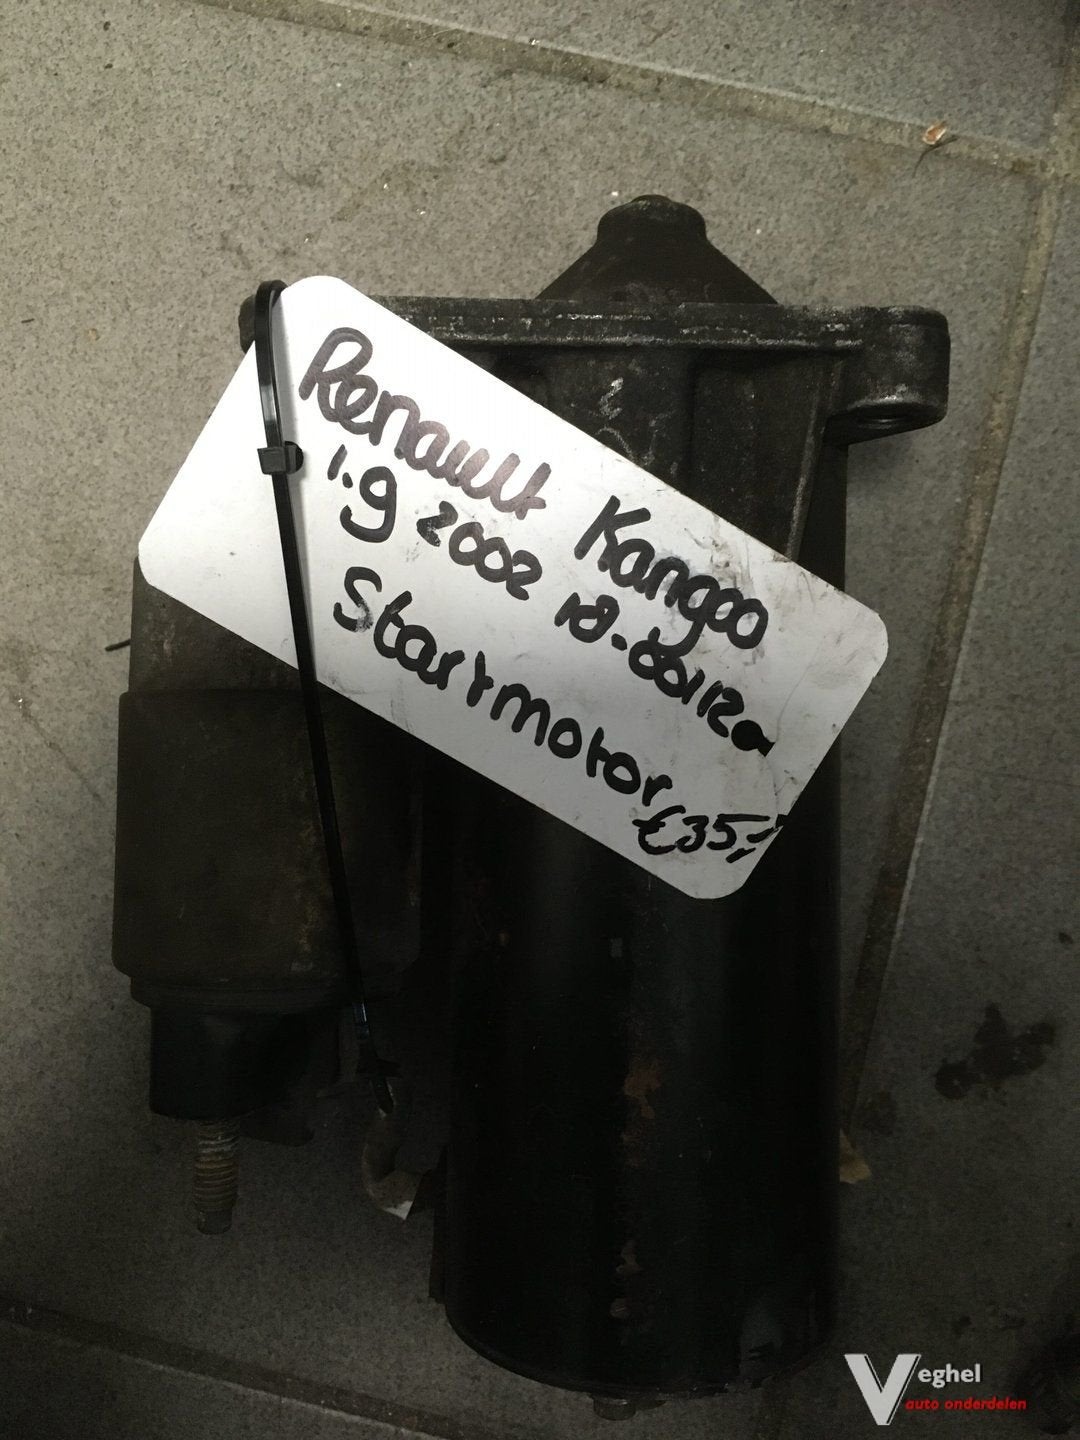 Renault Kangoo
1.9 2002
Startmotor
€35,-
Veghel
auto onderdelen